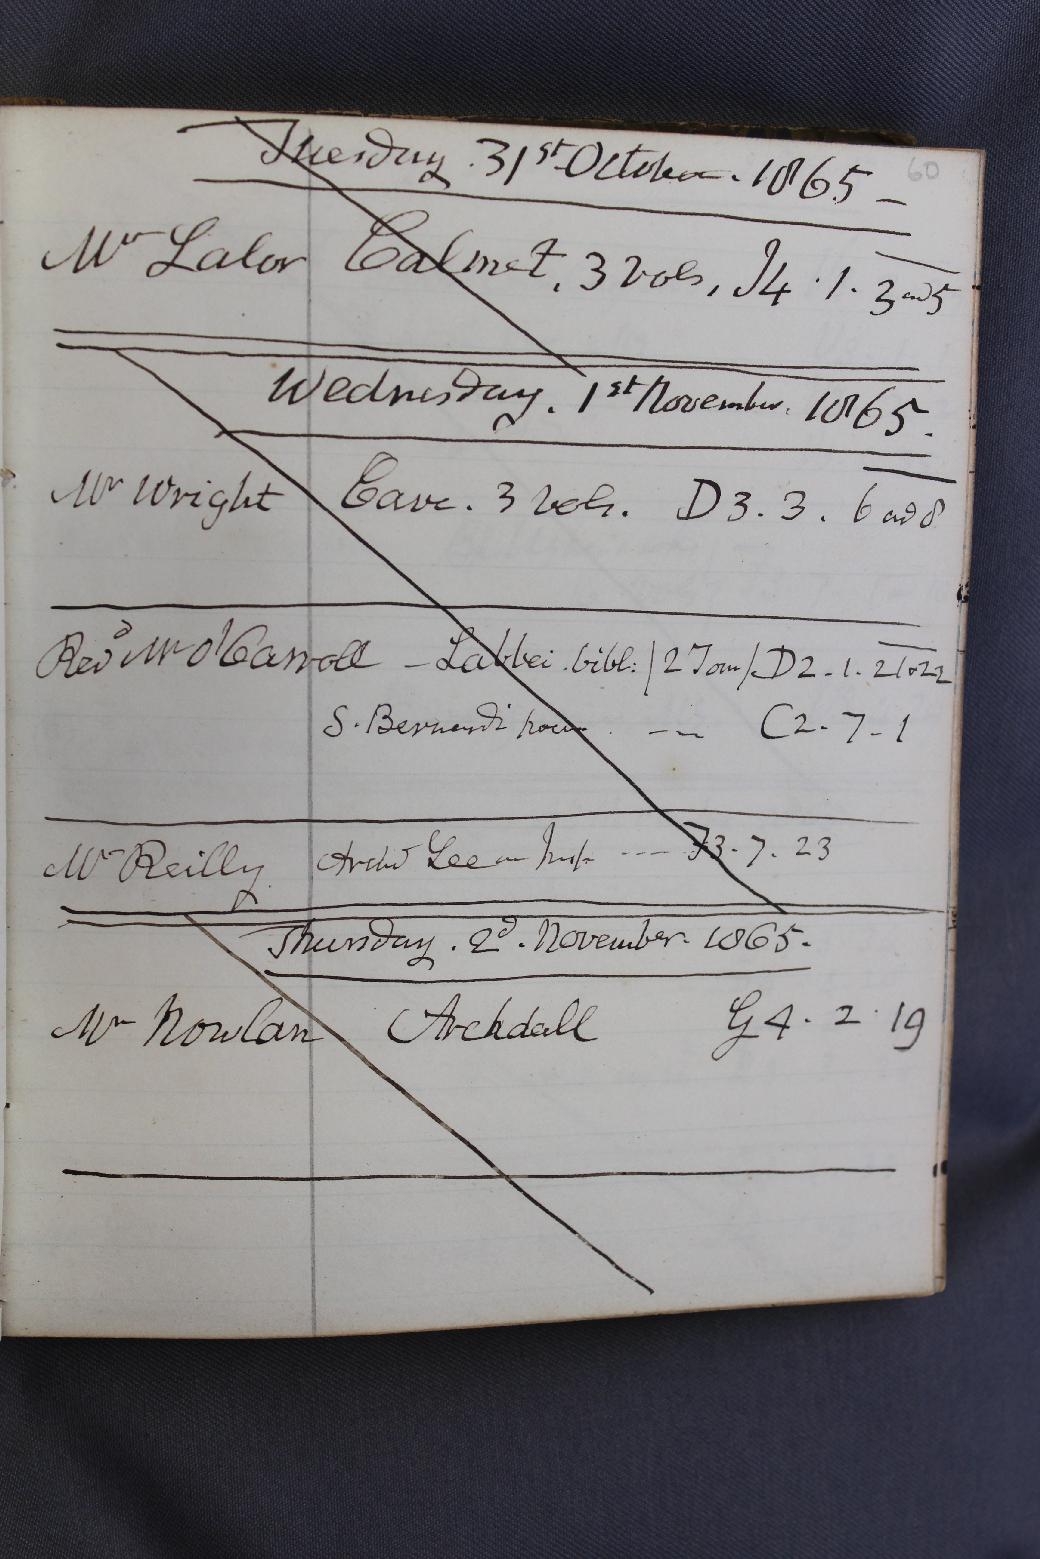 60
Tuesday. 31st October. 1865 -
Mr Lalor Calmet, 3 vols, J4. 1. 3 and 5
Wednesday. 1st November. 1865.
Mr Wright Cave. 3 vols. D3. 3. 6 and 8
Revd Mr O'Carroll - Labbei bibl: /2 Tom/ D2. 1. 21 & 22
S. Bernardi --- C2. 7. 1
Mr Reilly Archd Lee on --- 7. 23
Thursday. 2d. November. 1865.
Mr Nowlan Archdall G4. 2. 19